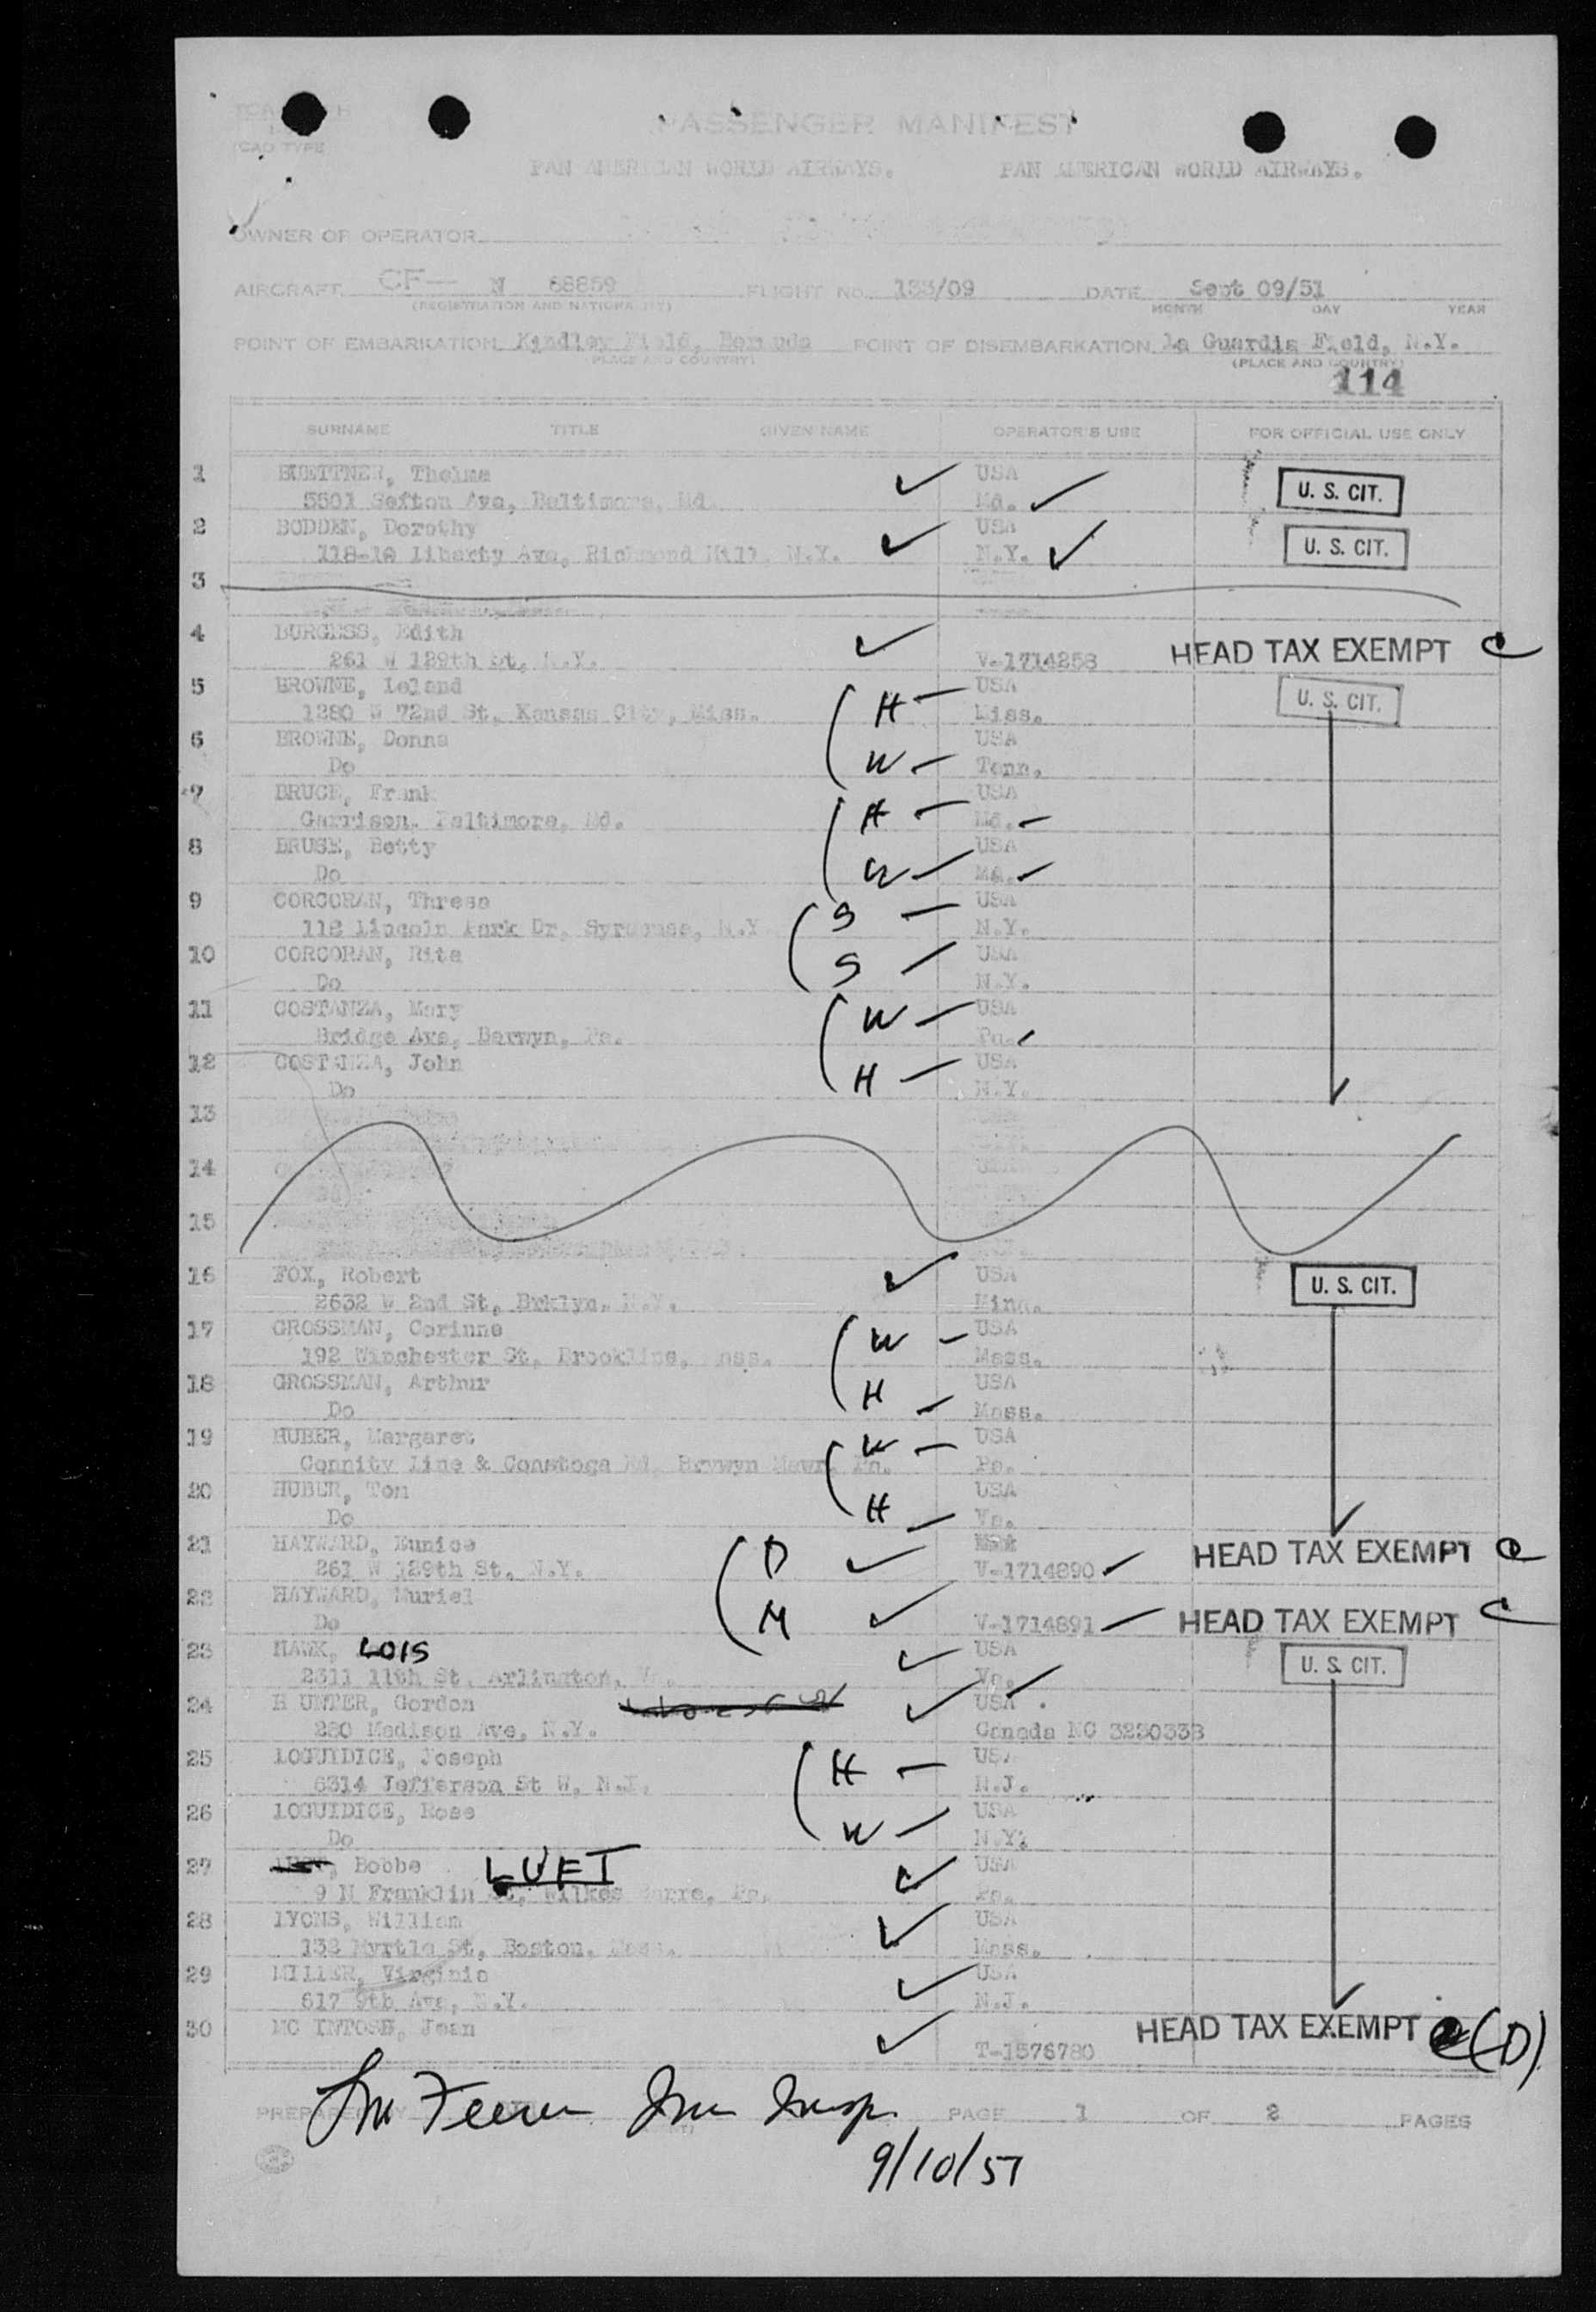 ICAO TYPE
PASSENGER MANIFEST
PAN AMERICAN WORLD AIRWAYS. PAN AMERICAN WORLD AIRWAYS.
OWNER OR OPERATOR
AIRCRAFT CF— N 88859 FLIGHT No. 133/09 DATE Sept 09/51
(REGISTRATION AND NATIONALITY) MONTH DAY YEAR
POINT OF EMBARKATION Kindley Field, Bermuda POINT OF DISEMBARKATION la Guardia Field, N.Y.
(PLACE AND COUNTRY) (PLACE AND COUNTRY)
114
SURNAME TITLE GIVEN NAME OPERATOR'S USE FOR OFFICIAL USE ONLY
1 BUETTNER, Thelma USA U. S. CIT.
5501 Sefton Ave, Baltimore, Md. Md.
2 BODDEN, Dorothy USA U. S. CIT.
118-10 Liberty Ave, Richmond Hill, N.Y. N.Y.
3
4 BURGESS, Edith HEAD TAX EXEMPT C
261 W 129th St, N.Y. V-1714258
5 BROWNE, Leland H USA U. S. CIT.
1280 W 72nd St, Kansas City, Miss. Miss.
6 BROWNE, Donna W USA
Do Tenn.
7 BRUCE, Frank H USA
Garrison, Baltimore, Md. Md.
8 BRUSE, Betty W USA
Do Md.
9 CORCORAN, Thresa S USA
112 Lincoln Park Dr, Syracuse, N.Y. N.Y.
10 CORCORAN, Rita S USA
Do N.Y.
11 COSTANZA, Mary W USA
Bridge Ave, Berwyn, Pa. Pa.
12 COSTANZA, John H USA
Do N.Y.
13
14
15
16 FOX, Robert USA U. S. CIT.
2632 W 2nd St, Brklyn, N.Y. Minn.
17 GROSSMAN, Corinne W USA
192 Winchester St, Brookline, Mass. Mass.
18 GROSSMAN, Arthur H USA
Do Mass.
19 HUBER, Margaret W USA
Connity Line & Constoga Rd, Brywyn Mawr, Pa. Pa.
20 HUBER, Tom H USA
Do Va.
21 HAYWARD, Eunice D HEAD TAX EXEMPT C
261 W 129th St, N.Y. V-1714890
22 HAYWARD, Muriel M HEAD TAX EXEMPT C
Do V-1714891
23 HAWK, LOIS USA U. S. CIT.
2311 11th St, Arlington, Va. Va.
24 H UNTER, Gordon USA
280 Madison Ave, N.Y. Canada NC 3230333
25 LOGUIDICE, Joseph H USA
6314 Jefferson St W, N.J. N.J.
26 LOGUIDICE, Rose W USA
Do N.Y.
27 Bobbe LUFT USA
9 N Franklin St, Wilkes Barre, Pa. Pa.
28 LYONS, William USA
132 Myrtle St, Boston, Mass. Mass.
29 MILLER, Virginia USA
617 9th Ave, N.Y. N.J.
30 MC INTOSH, Jean HEAD TAX EXEMPT (D)
T-1576780
PREPARED BY Imm Insp. PAGE 1 OF 2 PAGES
9/10/51